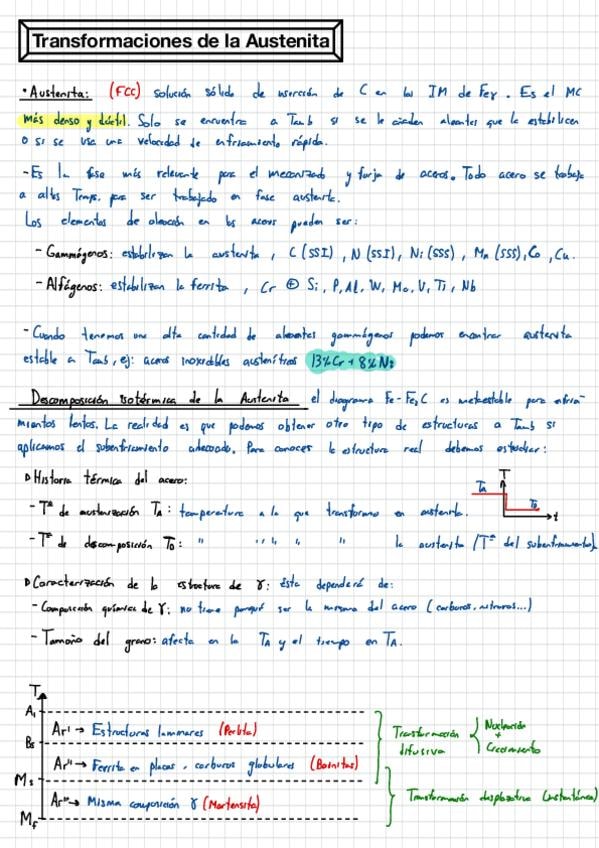 Transformaciones de la Austenita
• Austenita: (FCC) solución sólida de inserción de C en los IM de Feγ. Es el MC
más denso y dúctil. Solo se encuentra a Tamb si se le añaden aleantes que la estabilicen
o si se usa una velocidad de enfriamiento rápida.
- Es la fase más relevante para el mecanizado y forja de aceros. Todo acero se trabaja
a altas Temps. para ser trabajado en fase austenita.
Los elementos de aleación en los aceros pueden ser:
- Gammágenos: estabilizan la austenita, C (SSI), N (SSI), Ni (SSS), Mn (SSS), Co, Cu.
- Alfágenos: estabilizan la ferrita, Cr ⊕ Si, P, Al, W, Mo, V, Ti, Nb
- Cuando tenemos una alta cantidad de aleantes gammágenos podemos encontrar austenita
estable a Tamb, ej: aceros inoxidables austeníticos 13%Cr + 8%Ni
Descomposición isotérmica de la Austenita el diagrama Fe-Fe3C es metaestable para enfria-
mientos lentos. La realidad es que podemos obtener otro tipo de estructuras a Tamb si
aplicamos el subenfriamiento adecuado. Para conocer la estructura real debemos estudiar:
▷ Historia térmica del acero:
T
TA
TD
t
- Tª de austenización TA: temperatura a la que transforma en austenita.
- Tª de descomposición TD: " " " " la austenita (Tª del subenfriamiento).
▷ Caracterización de la estructura de γ: ésta dependerá de:
- Composición química de γ: no tiene porqué ser la misma del acero (carburos, nitruros...)
- Tamaño del grano: afecta en la TA y el tiempo en TA.
T
A1
Ar' → Estructuras laminares (Perlita)
Bs
Ar'' → Ferrita en placas, carburos globulares (Bainitas)
Ms
Ar''' → Misma composición γ (Martensita)
Mf
Transformación difusiva
Nucleación
+
Crecimiento
Transformación desplazativa (instantánea)